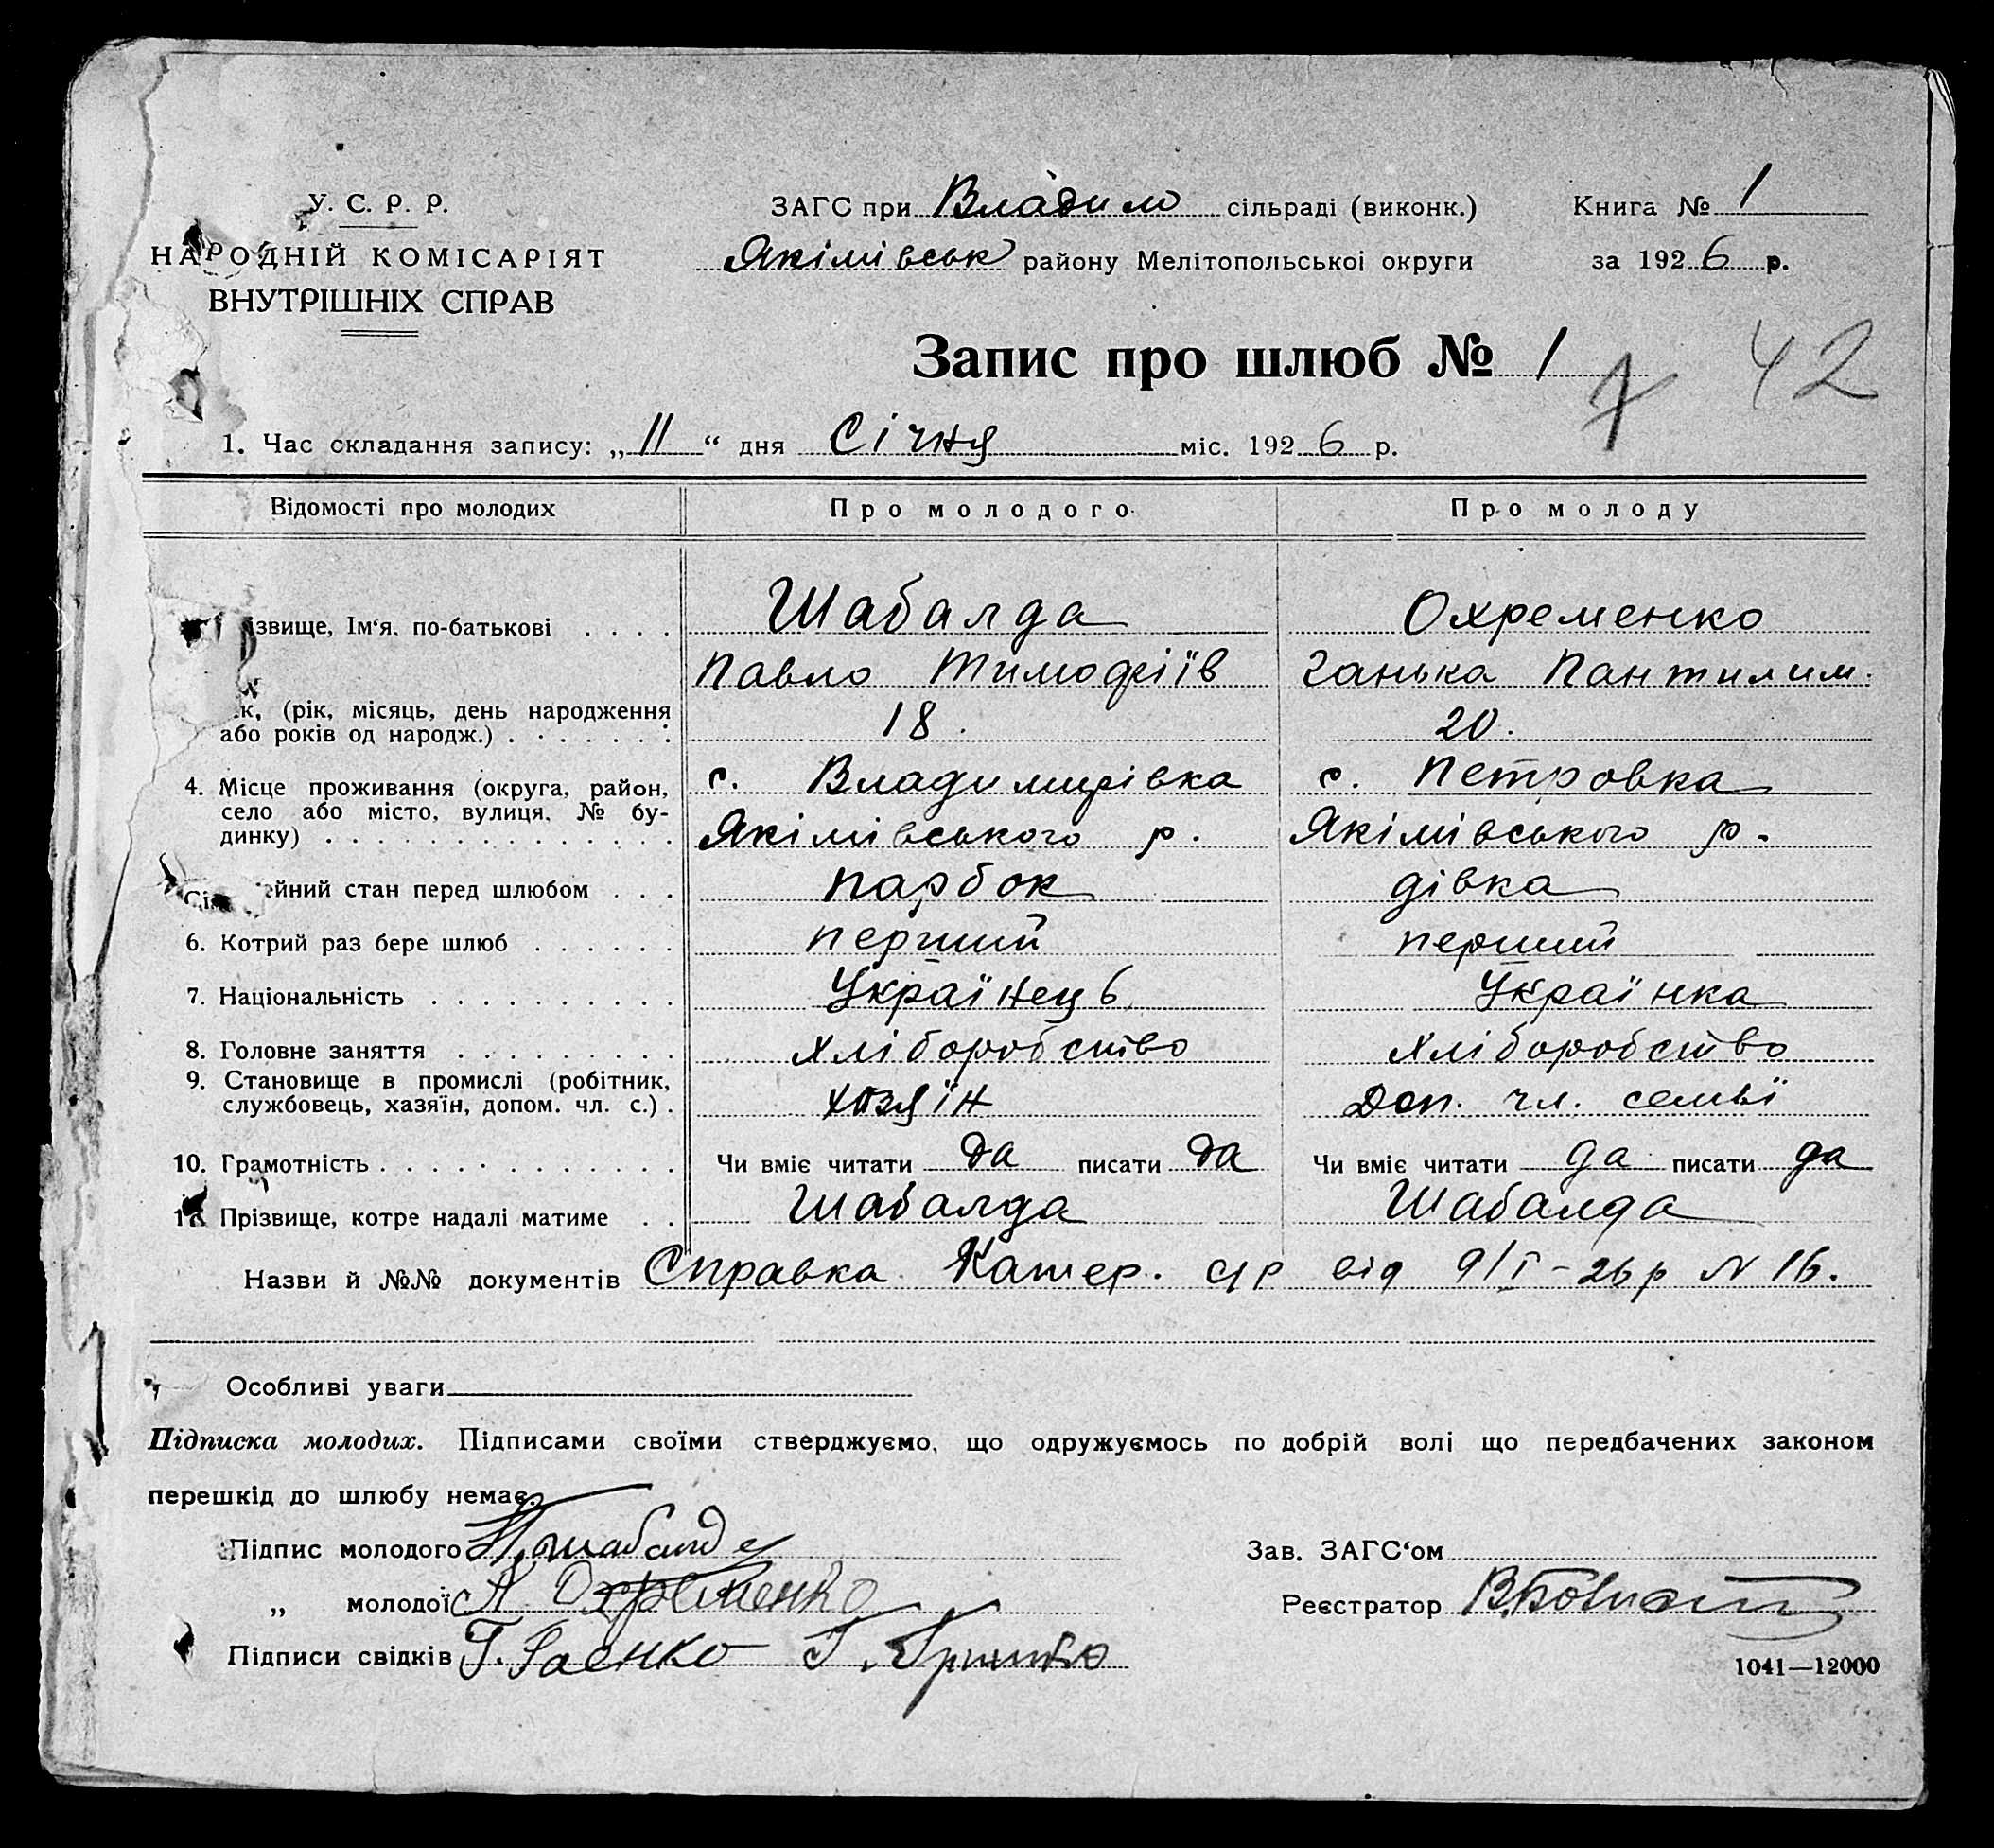 У. С. Р. Р.
НАРОДНІЙ КОМІСАРІЯТ
ВНУТРІШНІХ СПРАВ
ЗАГС при Владим сільраді (виконк.)
Якімівськ району Мелітопольської округи
Книга № 1
за 1926 р.
Запис про шлюб № 1
42
1. Час складання запису: „11“ дня Січня міс. 1926 р.
Відомості про молодих Про молодого Про молоду
ізвище, Ім'я. по-батькові . . . . Шабалда Охременко
Павло Тимофіїв Ганька Пантилим.
ік, (рік, місяць, день народження
або років од народж.) . . . . . . . 18. 20.
4. Місце проживання (округа, район, с. Владимирівка с. Петровка
село або місто, вулиця, № бу-
динку) . . . . . . . . . . . . . . Якімівського р. Якімівського р.
ейний стан перед шлюбом . . . парбок дівка
6. Котрий раз бере шлюб . . . . . . перший перший
7. Національність . . . . . . . . . . Українець Українка
8. Головне заняття . . . . . . . . . Хліборобство Хліборобство
9. Становище в промислі (робітник,
службовець, хазяїн, допом. чл. с.) . хазяїн Доп. чл. семьї
10. Грамотність . . . . . . . . . . . . Чи вміє читати да писати да Чи вміє читати да писати да
Прізвище, котре надалі матиме . . Шабалда Шабалда
Назви й №№ документів Справка Катер. с/р від 9/I – 26 р N 16.
Особливі уваги
Підписка молодих. Підписами своїми стверджуємо, що одружуємось по добрій волі що передбачених законом
перешкід до шлюбу немає.
Підпис молодого П. Шабалда
Зав. ЗАГС'ом
„ молодої А. Охременко
Реєстратор
Підписи свідків Г.
1041—12000